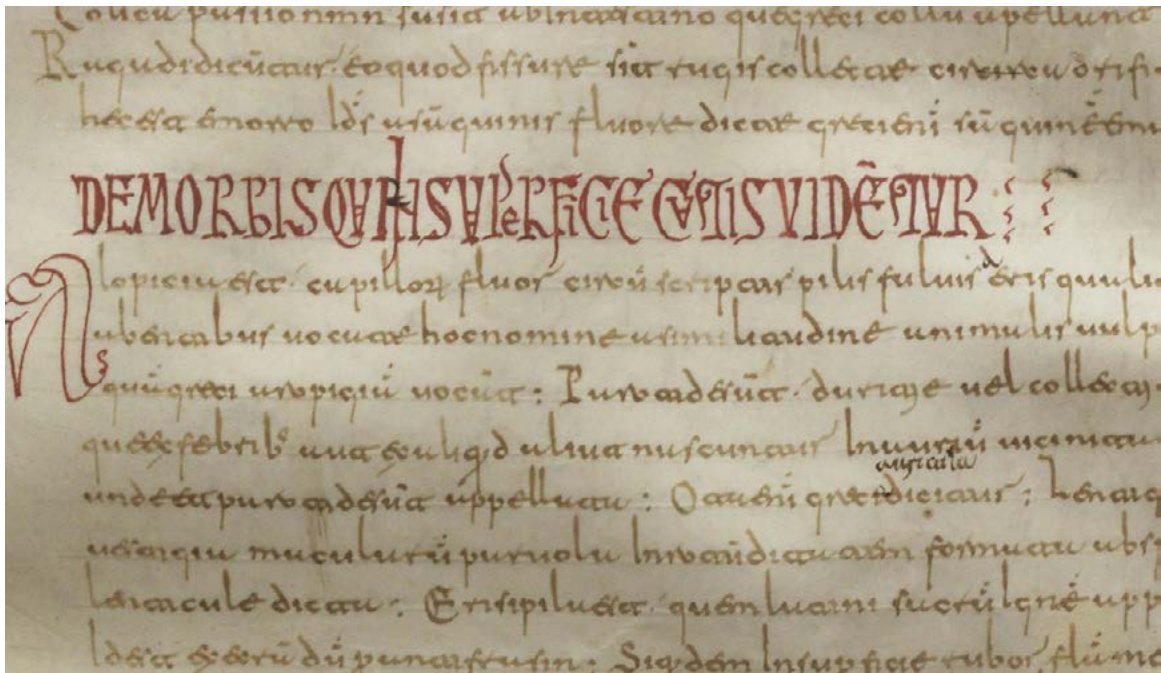 Colica passio nmn susit ab intestino que greci collu appellant
Ragadi dicūtur · eo quod fissure sīt rugis collectae circu orifi
hec est emorro ids a sāguinis fluore dictae greci enī sāguinē em
DE MORBIS QVI IN SVPERFICIE CVTIS VIDĒNTVR
Alopicia est · capillorum fluor circūscriptus pilis fulvis eris quali
abentibus vocatae hoc nomine a similitudine animalis vulp
quā greci aropiciā vocāt : Parotade sūt · duritiae vel collectio
que ex febribus aut ex aliquid aliut nascuntur In auriū vicinita
unde et parotade sūt appellata : Oaten greci auricula dicitur : Lentig
vestigia macularū parvola In rotūditatem formata ab sp
lenticule dicta : Erisipila est · quem latini sacrū ignē app
Id est execrādū per antifrasin : Siquidem In superficie rubor flāme